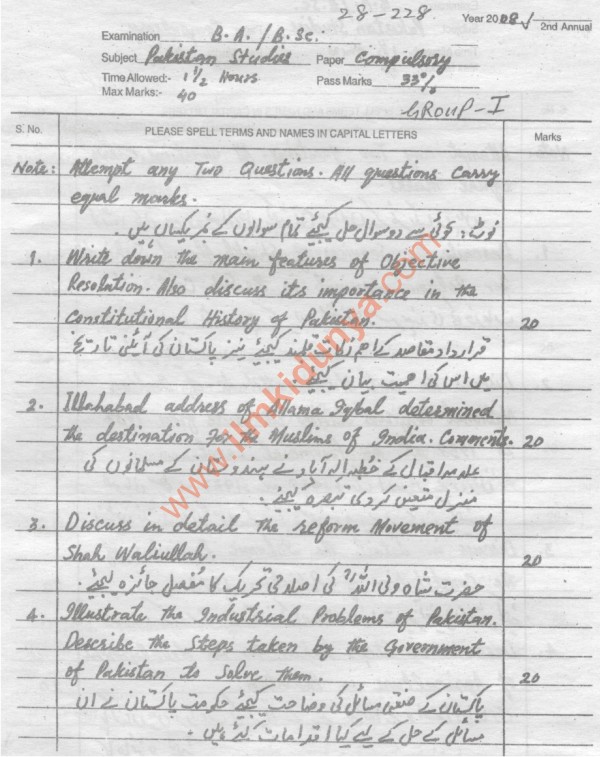 28-228
Year 2008 2nd Annual
Examination B.A./B.Sc.
Subject Pakistan Studies Paper Compulsory
Time Allowed:- 1½ Hours Pass Marks 33%
Max Marks:- 40
GROUP-I
S. No. PLEASE SPELL TERMS AND NAMES IN CAPITAL LETTERS Marks
Note: Attempt any Two Questions. All questions Carry
equal marks.
نوٹ: کوئی سے دو سوال حل کیجئے تمام سوالوں کے نمبر یکساں ہیں.
1. Write down the main features of Objective
Resolution. Also discuss its importance in the
Constitutional History of Pakistan. 20
قرارداد مقاصد کے اہم نکات قلمبند کیجئے نیز پاکستان کی آئینی تاریخ
میں اس کی اہمیت بیان کیجئے.
2. Illahabad address of Allama Iqbal determined
the destination for the Muslims of India. Comments. 20
علامہ اقبال کے خطبہ الہ آباد نے ہندوستان کے مسلمانوں کی
منزل متعین کر دی تبصرہ کیجئے.
3. Discuss in detail the reform Movement of
Shah Waliullah. 20
حضرت شاہ ولی اللہؒ کی اصلاحی تحریک کا مفصل جائزہ لیجئے.
4. Illustrate the Industrial Problems of Pakistan.
Describe the Steps taken by the Government
of Pakistan to Solve them. 20
پاکستان کے صنعتی مسائل کی وضاحت کیجئے حکومت پاکستان نے ان
مسائل کے حل کے لیے کیا اقدامات کئے ہیں.
www.ilmkidunya.com